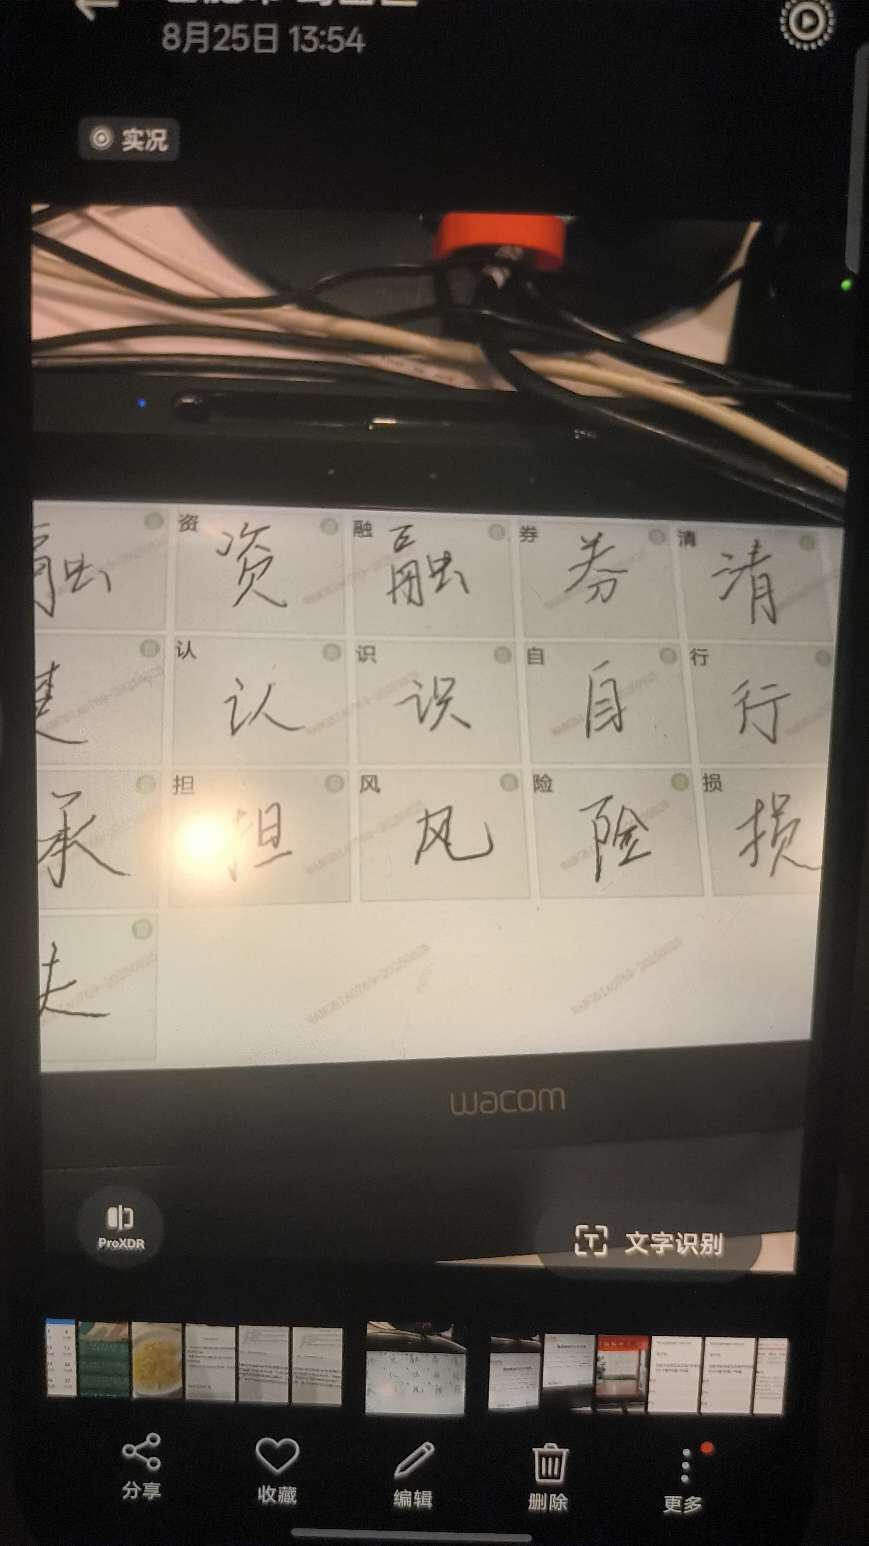 8月25日 13:54
实况
融 资 资 融 融 券 券 清 清
认 认 识 识 自 自 行 行
承 担 担 风 风 险 险 损 损
失
wacom
ProXDR
文字识别
分享 收藏 编辑 删除 更多